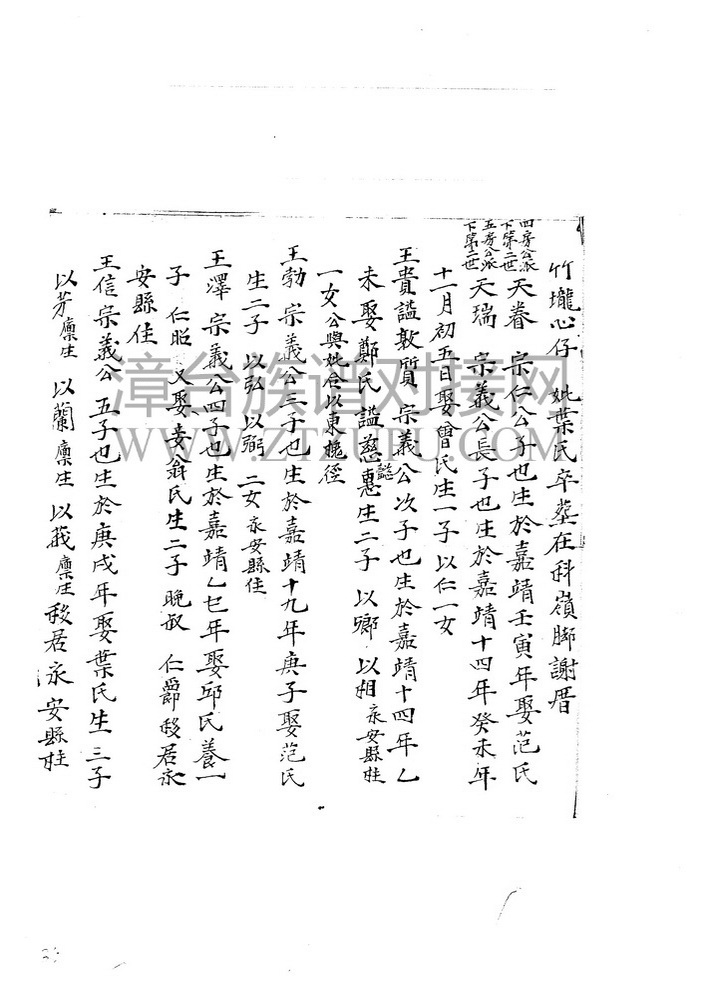 竹壠心仔 妣葉氏卒墓在科嶺脚謝厝
四房公派下第二世 天眷 宗仁公子也生於嘉靖壬寅年娶范氏
五房公派下第二世 天瑞 宗義公長子也生於嘉靖十四年癸未年
十一月初五日娶曾氏生一子以仁一女
王貴諡敦質 宗義公次子也生於嘉靖十四年乙
未娶鄭氏諡慈懿惠生二子 以鄉 以相 永安縣住
一女公與妣合以東槐徑
王勃 宗義公三子也生於嘉靖十九年庚子娶范氏
生二子 以弘 以弼 二女永安縣住
王澤 宗義公四子也生於嘉靖乙巳年娶邱氏養一
子 仁昭 又娶妾翁氏生二子 晚叔 仁爵移居永
安縣住
王信宗義公五子也生於庚戌年娶葉氏生三子
以芳廪生 以蘭廪生 以莪廪生移居永安縣住
漳台族谱对接网
WWW.ZTZUPU.COM